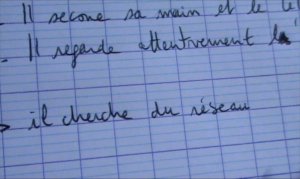 - Il secoue sa main et le
- Il regarde attentivement
> il cherche du réseau